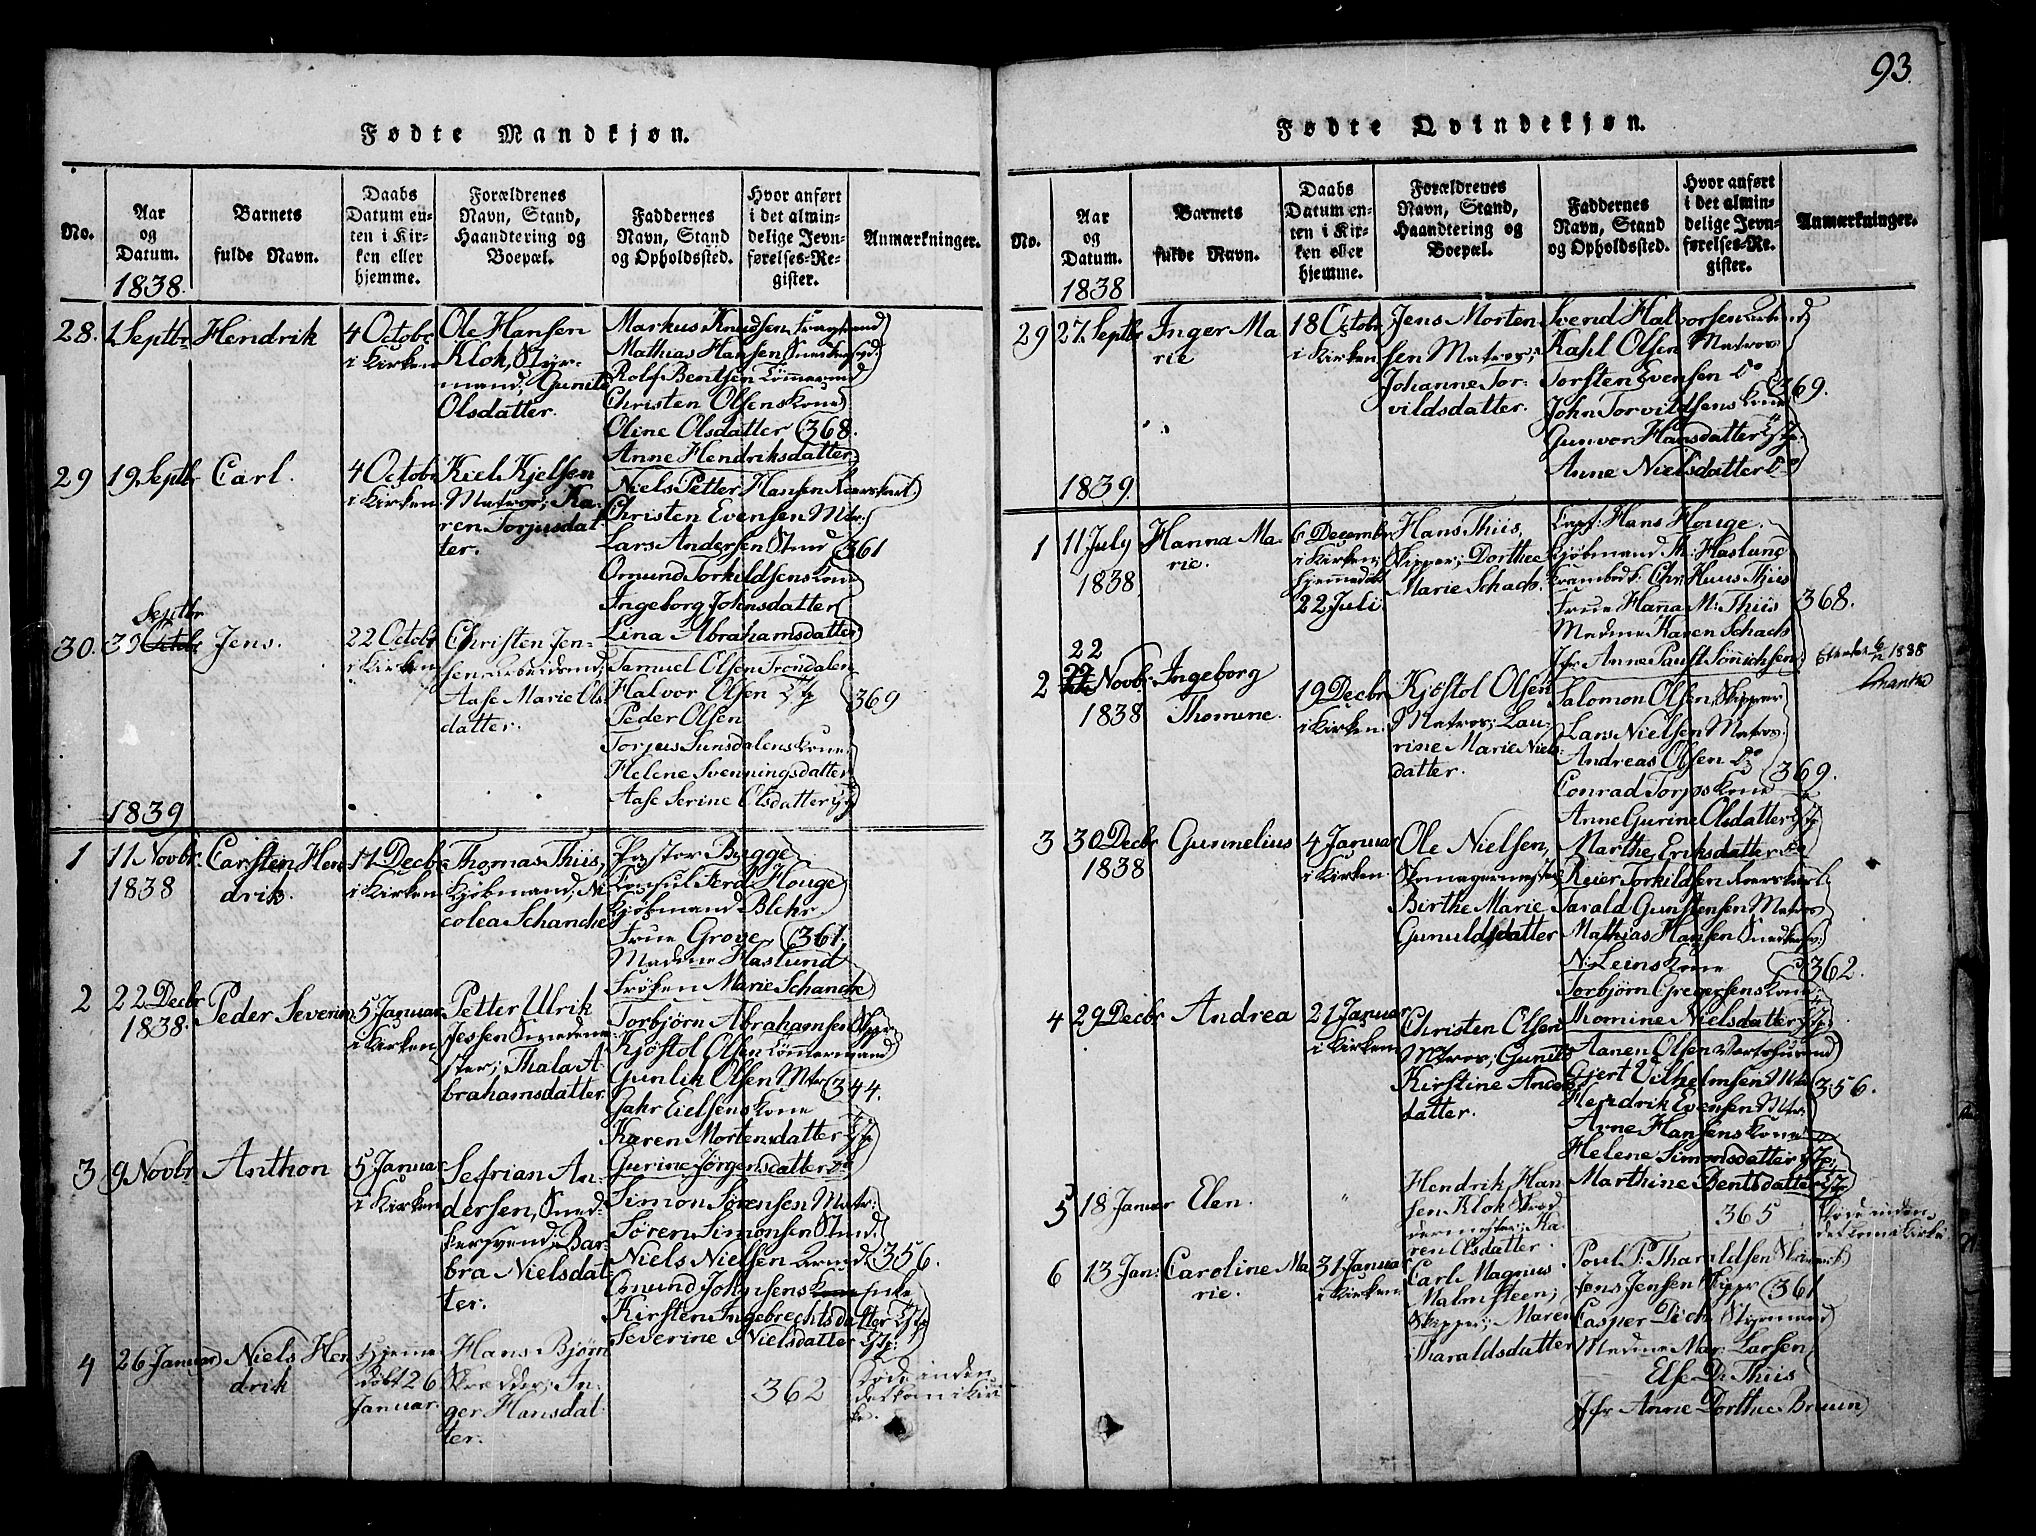 93.
Fødte Mandkjøn.
No.
Aar
og
Datum.
1838.
Barnets
fulde Navn.
Daabs
Datum en-
ten i Kir-
ken eller
hjemme.
Forældrenes
Navn, Stand,
Haandtering og
Boepæl.
Faddernes
Navn, Stand
og Opholdssted.
Hvor anført
i det almin-
delige Jevn-
førelses-Re-
gister.
Anmærkninger.
28.
1 Septbr
Hendrik
4 Octobr
i Kirken
Ole Hansen
Klok, Styr-
mand; Gunild
Olsdatter.
Markus Knudsen
Mathias Hansen Snedkersvd.
Rolf Bentsen Tømmermd
Christen Olsens Kone
Oline Olsdatter 368.
Anne Hendriksdatter
29
19 Septbr
Carl.
4 Octobr
i Kirken
Kiel Kjelsen
Matros; Ka-
ren Torjusdat-
ter.
Niels Petter Hansen
Christen Evensen Mtr:
Lars Andersen 361
Omund Torkildsens Kone
Ingeborg Johnsdatter
Lina Abrahamsdatter
30.
Septbr
30 Octobr
Jens.
22 Octobr
i Kirken
Christen Jen-
sen Arbeidsmd;
Aase Marie Ols-
datter.
Samuel Olsen Trondalen
Halvor Olsen
Peder Olsen
Torjus Sunsdalens Kone
Helene Svenningsdatter
Aase Serine Olsdatter
369
1839
1
11 Novbr
1838
Carsten Hen-
drik.
11 Decbr
i Kirken
Thomas Thiis,
Kjøbmand; Ni-
colea Schanche
Provst Bugge
Consul Ferd. Houge
Kjøbmand Blehr.
Frue Grove 361.
Madme Haslund
Frøken Marie Schanche
2
22 Decbr
1838.
Peder Severin
5 Januar
i Kirken
Petter Ulrik
Jessen Smedeme-
ster; Thala A-
brahamsdatter
Torbjørn Abrahamsen
Kjøstol Olsen Tømmermand
Gunlik Olsen Mtr 344.
Gahr Eielsens Kone
Karen Mortensdatter
Gurine Jørgensdatter do
3
9 Novbr
Anthon
5 Januar
i Kirken
Sefrian An-
dersen, Sned-
kersvend; Bar-
bra Nielsdat-
ter.
Simon Sørensen Matr:
Søren Simonsen
Niels Nielsen 356.
Omund Johnsens Kone Enke
Kirsten Ingebrechtsdatter
Severine Nielsdatter
4
26 Januar
Niels Hen-
drik
Hjemme
døbt 26
Januar.
Hans Bjørn
Skrædder; In-
ger Hansdat-
ter.
362
Døde inden
det kom i Kir-
ke.
Fødte Qvindekjøn.
No.
Aar
og
Datum.
1838
Barnets
fulde Navn.
Daabs
Datum en-
ten i Kir-
ken eller
hjemme.
Forældrenes
Navn, Stand,
Haandtering og
Boepæl.
Faddernes
Navn, Stand
og Opholdssted.
Hvor anført
i det almin-
delige Jevn-
førelses-Re-
gister.
Anmærkninger.
29
27 Septbr
Inger Ma-
rie
18 Octobr
i Kirken
Jens Morten-
sen Matros;
Johanne Tor-
vildsdatter.
Svend Halvorsen
Kahl Olsen Matros
Torsten Evensen Do 369.
John Torvildsens Kone
Gunvor Hansdatter
Anne Nielsdatter Do
1839.
1
11 July
1838
Hanna Ma-
rie.
6 December
i Kirken;
Hjemmedøbt
22 Juli
Hans Thiis,
Skipper; Dorthee
Marie Schach.
Capt: Hans Houge.
Kjøbmand M: Haslund
Krambodk: Chr: Huus Thiis
Frue Hanna M: Thiis
Madme Karen Schach
Jfr Anne Pauline Sönnichsen
368.
2
22
Novbr
1838
Ingeborg
Thomine.
19 Decbr
i Kirken
Kjøstol Olsen
Matros; Lau-
rine Marie Niels-
datter.
Salomon Olsen, Skipper
Lars Nielsen Matros.
Andreas Olsen Do
Conrad Torps Kone 369.
Anne Gurine Olsdatter
Marthe Eriksdatter
3
30 Decbr
1838
Gunnelius
4 Januar
i Kirken.
Ole Nielsen,
Skomagermester
Birthe Marie
Gunuldsdatter
Reier Torkildsen
Tarald Gunstensen Matros
Mathias Hansen Snedkersv:
N: Leins Kone 362.
Torbjørn Gregersens Kone
Thomine Nielsdatter
4
29 Decbr
Andrea
21 Januar
i Kirken
Christen Olsen
Matros; Gunild
Kirstine Anders-
datter.
Aanen Olsen
Gjert Vilhelmsen Mtr 356.
Hendrik Evensen Mtr:
Arne Hansens Kone
Helene Simonsdatter
Marthine Bentsdatter
5
18 Januar
Elen.
"
Hendrik Han-
sen Klok Skræd-
dermester; Ka-
ren Olsdatter.
365
Døde inden
det kom i Kirke.
6
13 Jan:
Caroline Ma-
rie.
31 Januar
i Kirken
Carl Magnus
Malmsteen,
Skipper; Maren
Tharaldsdatter
Poul P: Tharaldsen
Jens Jensen Skippr 361
Casper Dech Styrmand
Madme Mar: Larsen
Else D: Thiis
Jfr Anne Dorthee Bruun